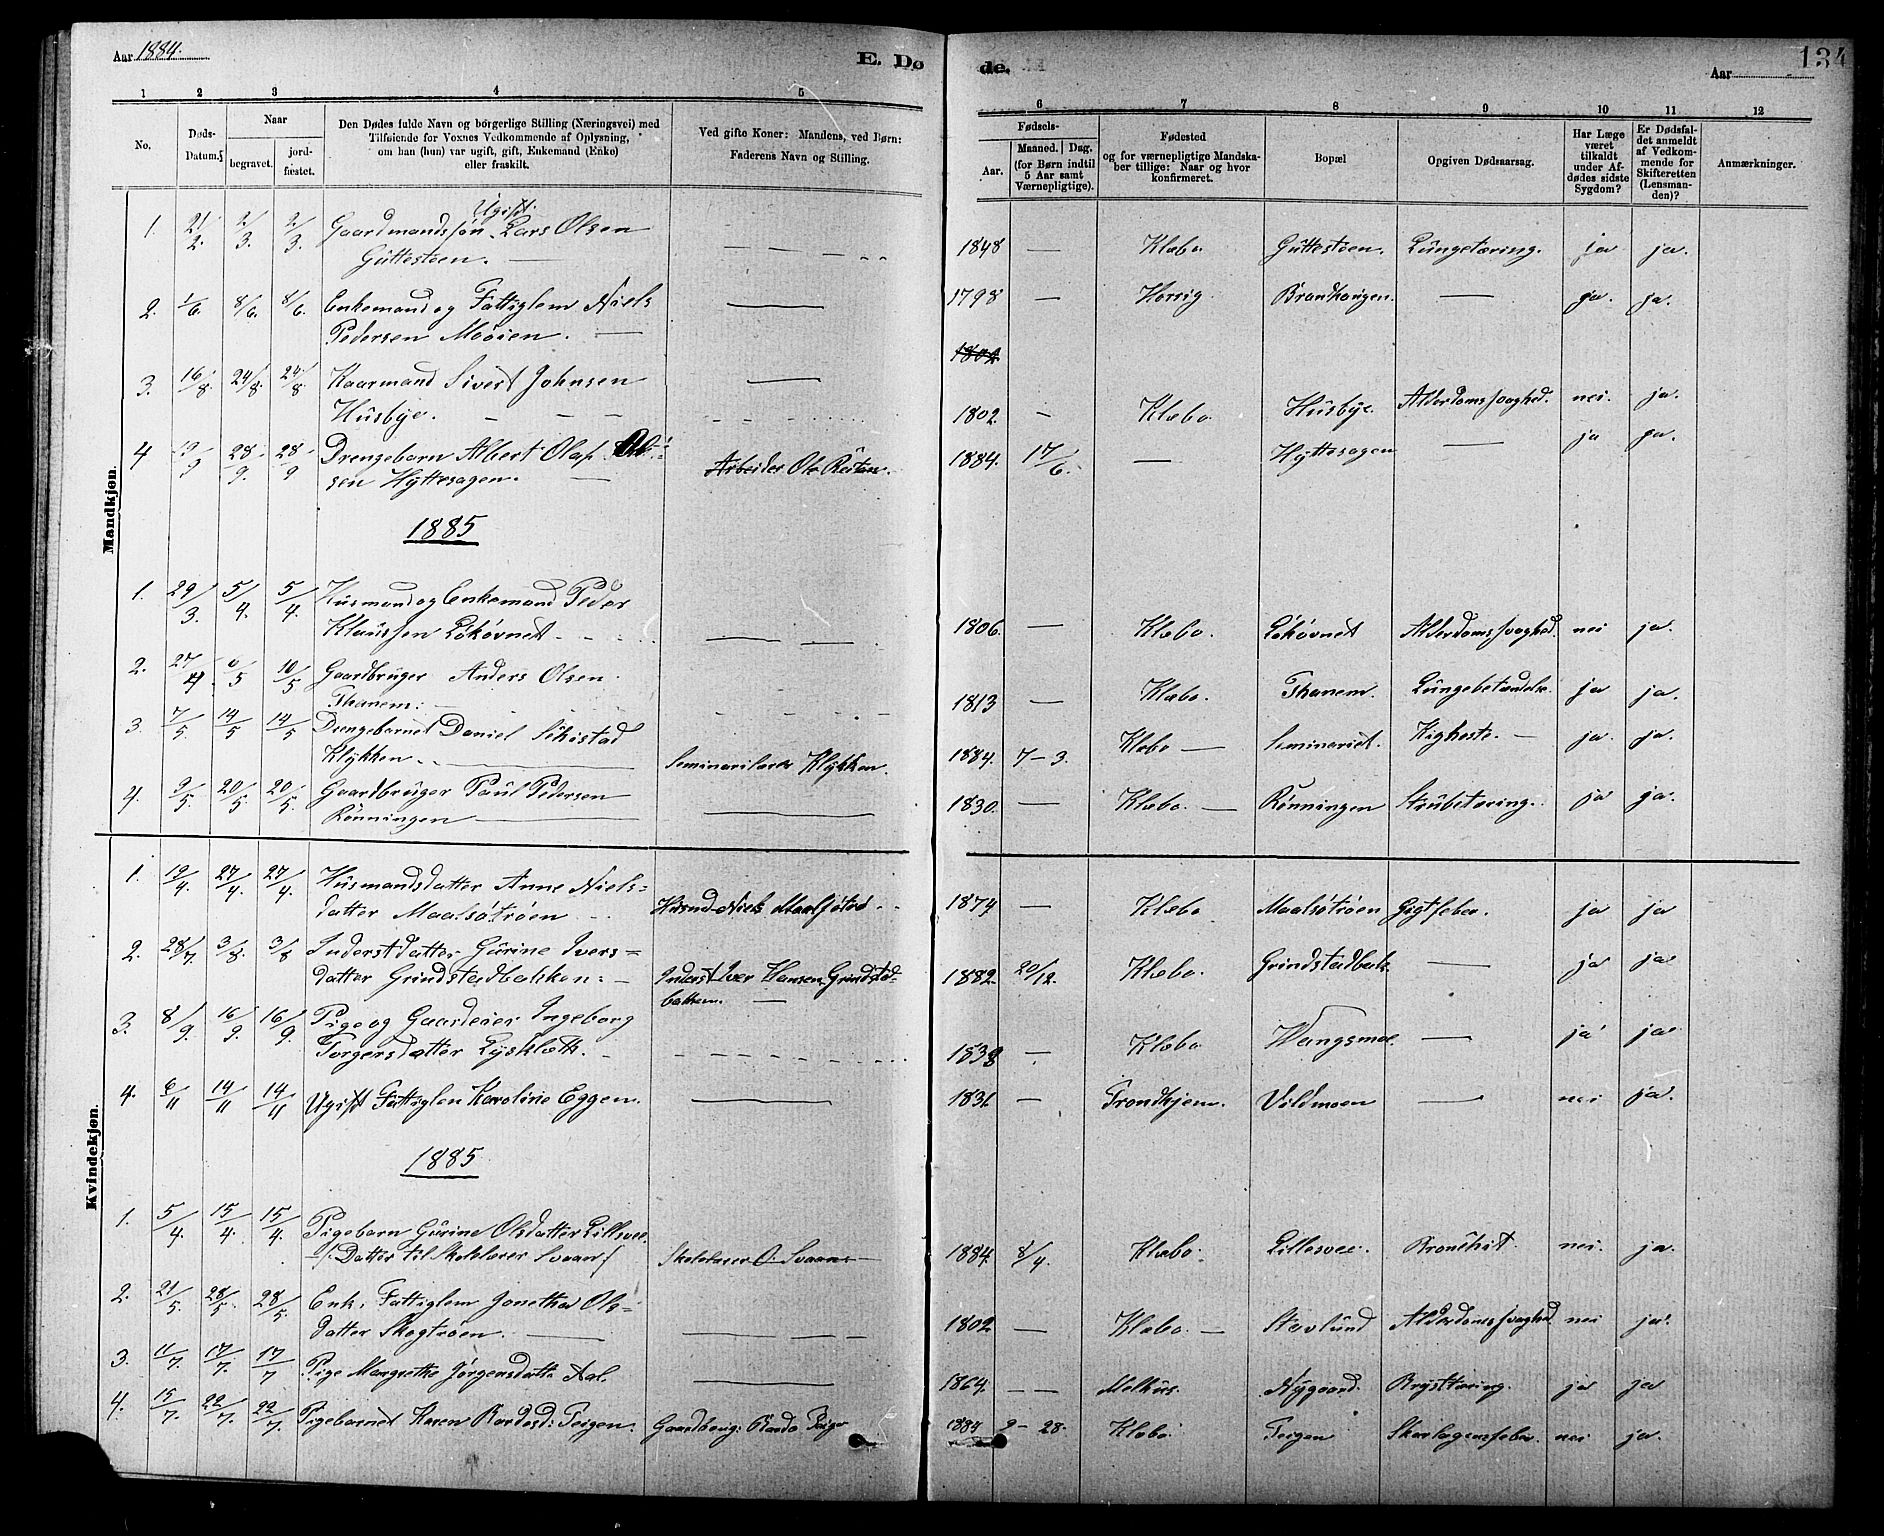 Aar 1884.
E. Dø
de.
134
Aar
1 2 3 4 5 6 7 8 9 10 11 12
No.
Døds-
Datum.
Naar
begravet.
jord-
fæstet.
Den Dødes fulde Navn og borgerlige Stilling (Næringsvei) med
Tilføiende for Voxnes Vedkommende af Oplysning,
om han (hun) var ugift, gift, Enkemand (Enke)
eller fraskilt.
Ved gifte Koner: Mandens, ved Børn:
Faderens Navn og Stilling.
Fødsels-
Aar.
Maaned. Dag.
(for Børn indtil
5 Aar samt
Værnepligtige).
Fødested
og for værnepligtige Mandska-
ber tillige: Naar og hvor
konfirmeret.
Bopæl
Opgiven Dødsaarsag.
Har Læge
været
tilkaldt
under Af-
dødes sidste
Sygdom?
Er Dødsfal-
det anmeldt
af Vedkom-
mende for
Skifteretten
(Lensman-
den)?
Anmærkninger.
Mandkjøn.
Ugift
1. 21/2. 2/3. 2/3. Gaardmandssøn Lars Olsen
Guttesteen. 1848 — Klæbo Guttesteen. Lungetæring. ja ja.
2. 1/6. 8/6. 8/6. Enkemand og Fattiglem Niels
Pedersen Mooien. 1798 — Horsig. Brandhaugen. — ja. ja.
1802
3. 16/8. 24/8. 24/8 Kaarmand Sivert Johnsen
Husbye. 1802. - Klæbo. Husbye. Alderdomssvaghed. nei. ja.
4 9/9 28/9. 28/9 Drengebarn Albert Olaf Ol-
sen Hyttesagen. Arbeider Ole Reitan. 1884. 17/6. — Hyttesagen — ja ja.
1885
1. 29/3. 5/4. 5/4. Husmand og Enkemand Peder
Klaussen Løkøvnet 1806. — Klæbo. Løkøvnet Alderdomssvaghed. nei ja.
2. 27/4. 6/5 10/5 Gaardbruger Anders Olsen.
Thanem. 1813 — Klæbo. Thanem. Lungebetændelse. ja ja.
3. 7/5. 14/5 14/5 Drengebarnet Daniel Sikistad
Klykken. Seminarilærer Klykken. 1884. 7-3. Klæbo — Seminariet. Kighoste. — ja. ja.
4. 9/5. 20/5. 20/5. Gaardbruger Paul Pedersen
Rønningen 1830. — Klæbo. — Rønningen Strubetæring. ja ja.
Kvindekjøn.
1. 19/4. 27/4. 27/4. Husmandsdatter Anne Niels-
datter Maalsøtrøen Husmd Niels Maalsøtrø 1874 — Klæbo Maalsøtrøen Gigtfeber. ja ja
2. 28/7. 3/8. 3/8 Inderstdatter Gurine Ivers-
datter Grindstadbakken. Inderst Iver Hansen Grindstad-
bakken. 1882. 20/12. Klæbo. Grindstadbak. — ja ja
3. 8/9. 16/9. 16/9 Pige og Gaardeier Ingeborg
Torgersdatter Lysklett. 1838 — Klæbo Wangsmoe. — ja ja
4. 6/11 14/11 14/11 Ugift Fattiglem Karoline Eggen. 1831. — Trondhjem. Vildmoen — nei ja.
1885
1. 5/4. 15/4. 15/4. Pigebarn Gurine Olsdatter Lillevee.
/: Datter til Skolelærer Svaan :/ Skolelærer O. Svaan. 1884. 8/4. Klæbo. Lillevee. Bronchit. nei. ja.
2. 21/5. 28/5. 28/5. Enk. Fattiglem Jonetha Ols-
datter Skogtrøen. 1802 — Klæbo. — Stavlund Alderdomssvaghed nei ja.
3. 11/7. 17/7. 17/7 Pige Margrethe Jørgensdatt. Aal. 1864. — Melhus. Nygaard. Brysttæring. ja ja
4. 15/7. 22/7. 22/7. Pigebarnet Karen Bardosd: Teigen. Gaardbrug: Bardo Teigen 1884 9-28. Klæbo Teigen Skarlagensfeber. nei ja.